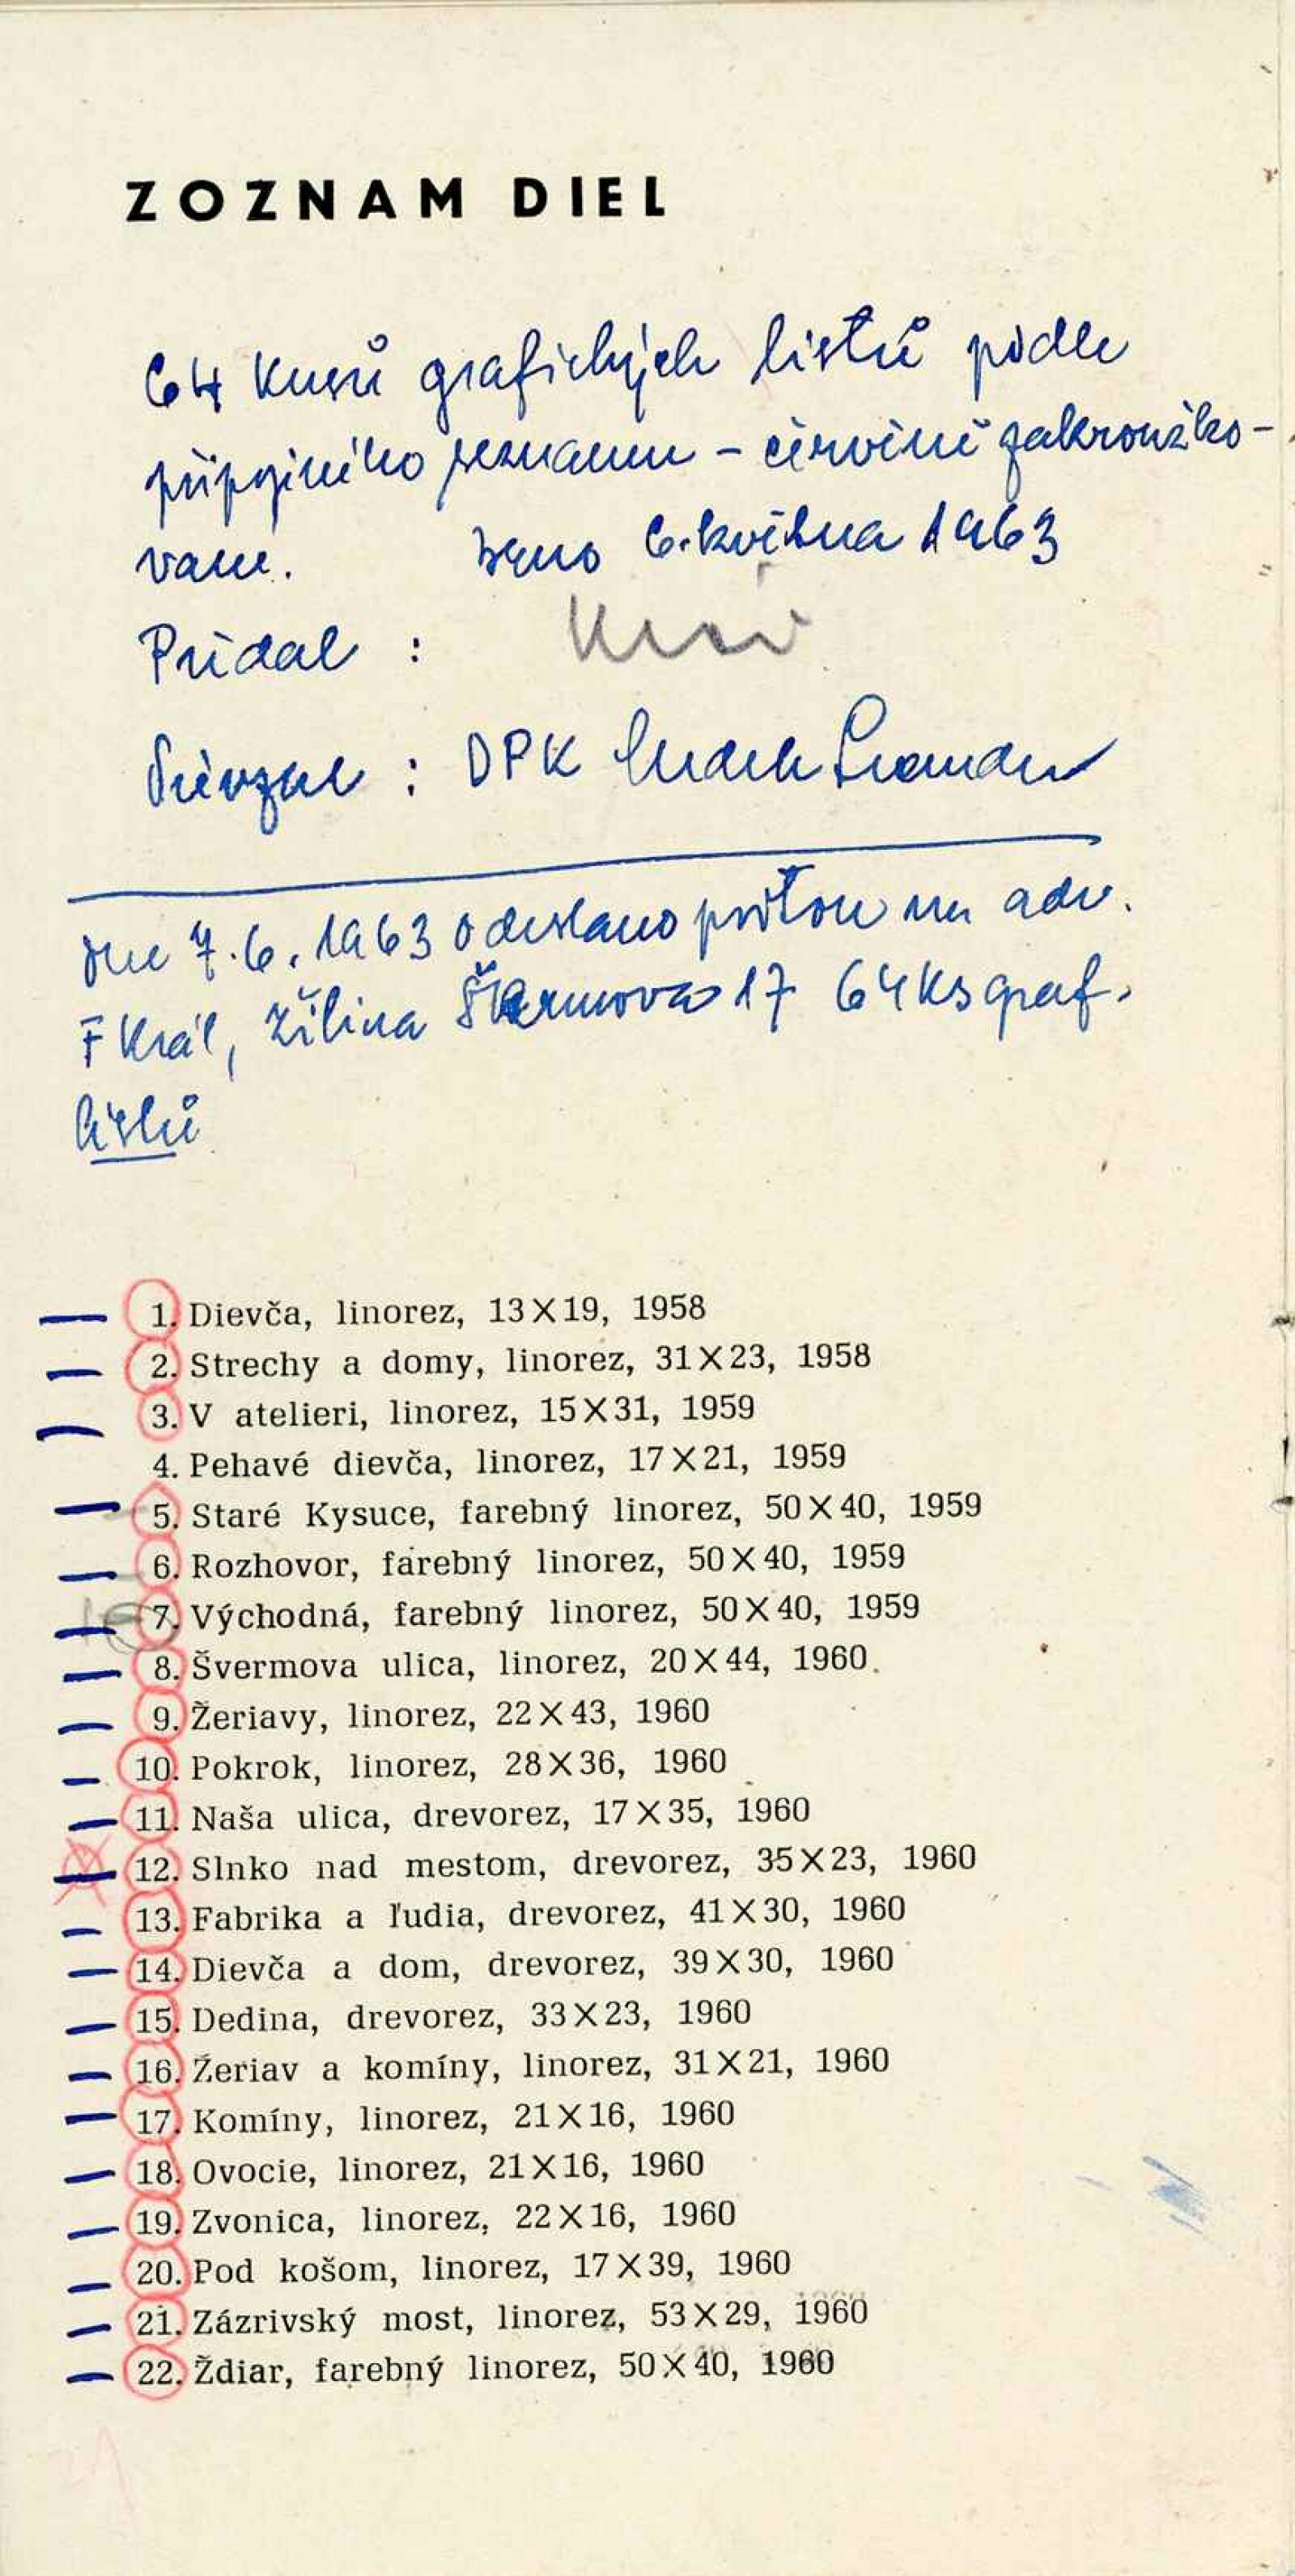 ZOZNAM DIEL
64 kusů grafických listů podle
připojeného seznamu – červeně zakroužko-
vané. Brno 6. května 1963
Předal : Král
Převzal : DPK
dne 7.6.1963 odesláno poštou na adr.
F Král, Žilina Švermova 17 64 ks graf.
listů
1. Dievča, linorez, 13X19, 1958
2. Strechy a domy, linorez, 31X23, 1958
3. V atelieri, linorez, 15X31, 1959
4. Pehavé dievča, linorez, 17X21, 1959
5. Staré Kysuce, farebný linorez, 50X40, 1959
6. Rozhovor, farebný linorez, 50X40, 1959
7. Východná, farebný linorez, 50X40, 1959
8. Švermova ulica, linorez, 20X44, 1960
9. Žeriavy, linorez, 22X43, 1960
10. Pokrok, linorez, 28X36, 1960
11. Naša ulica, drevorez, 17X35, 1960
12. Slnko nad mestom, drevorez, 35X23, 1960
13. Fabrika a ľudia, drevorez, 41X30, 1960
14. Dievča a dom, drevorez, 39X30, 1960
15. Dedina, drevorez, 33X23, 1960
16. Žeriav a komíny, linorez, 31X21, 1960
17. Komíny, linorez, 21X16, 1960
18. Ovocie, linorez, 21X16, 1960
19. Zvonica, linorez, 22X16, 1960
20. Pod košom, linorez, 17X39, 1960
21. Zázrivský most, linorez, 53X29, 1960
22. Ždiar, farebný linorez, 50X40, 1960
21